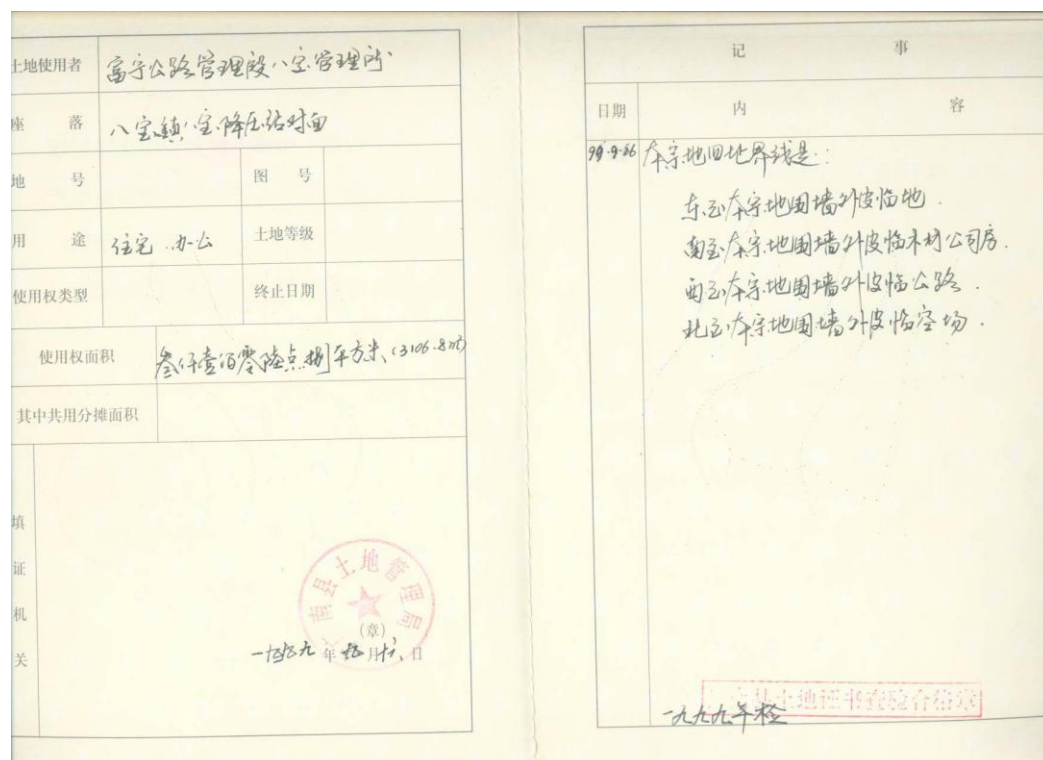 土地使用者 富宁公路管理段八宝管理所
座 落 八宝镇八宝降压站对面
地 号 图 号
用 途 住宅.办公 土地等级
使用权类型 终止日期
使用权面积 叁仟壹佰零陆点捌平方米(3106.8m²)
其中共用分摊面积
填证机关
南县土地管理局
(章)
年 月 日
记 事
日期 内 容
本宗地四地界线是:
东至本宗地围墙外皮临地.
南至本宗地围墙外皮临木材公司房.
西至本宗地围墙外皮临公路.
北至本宗地围墙外皮临空场.
土地证书查验合格章
一九九九年检